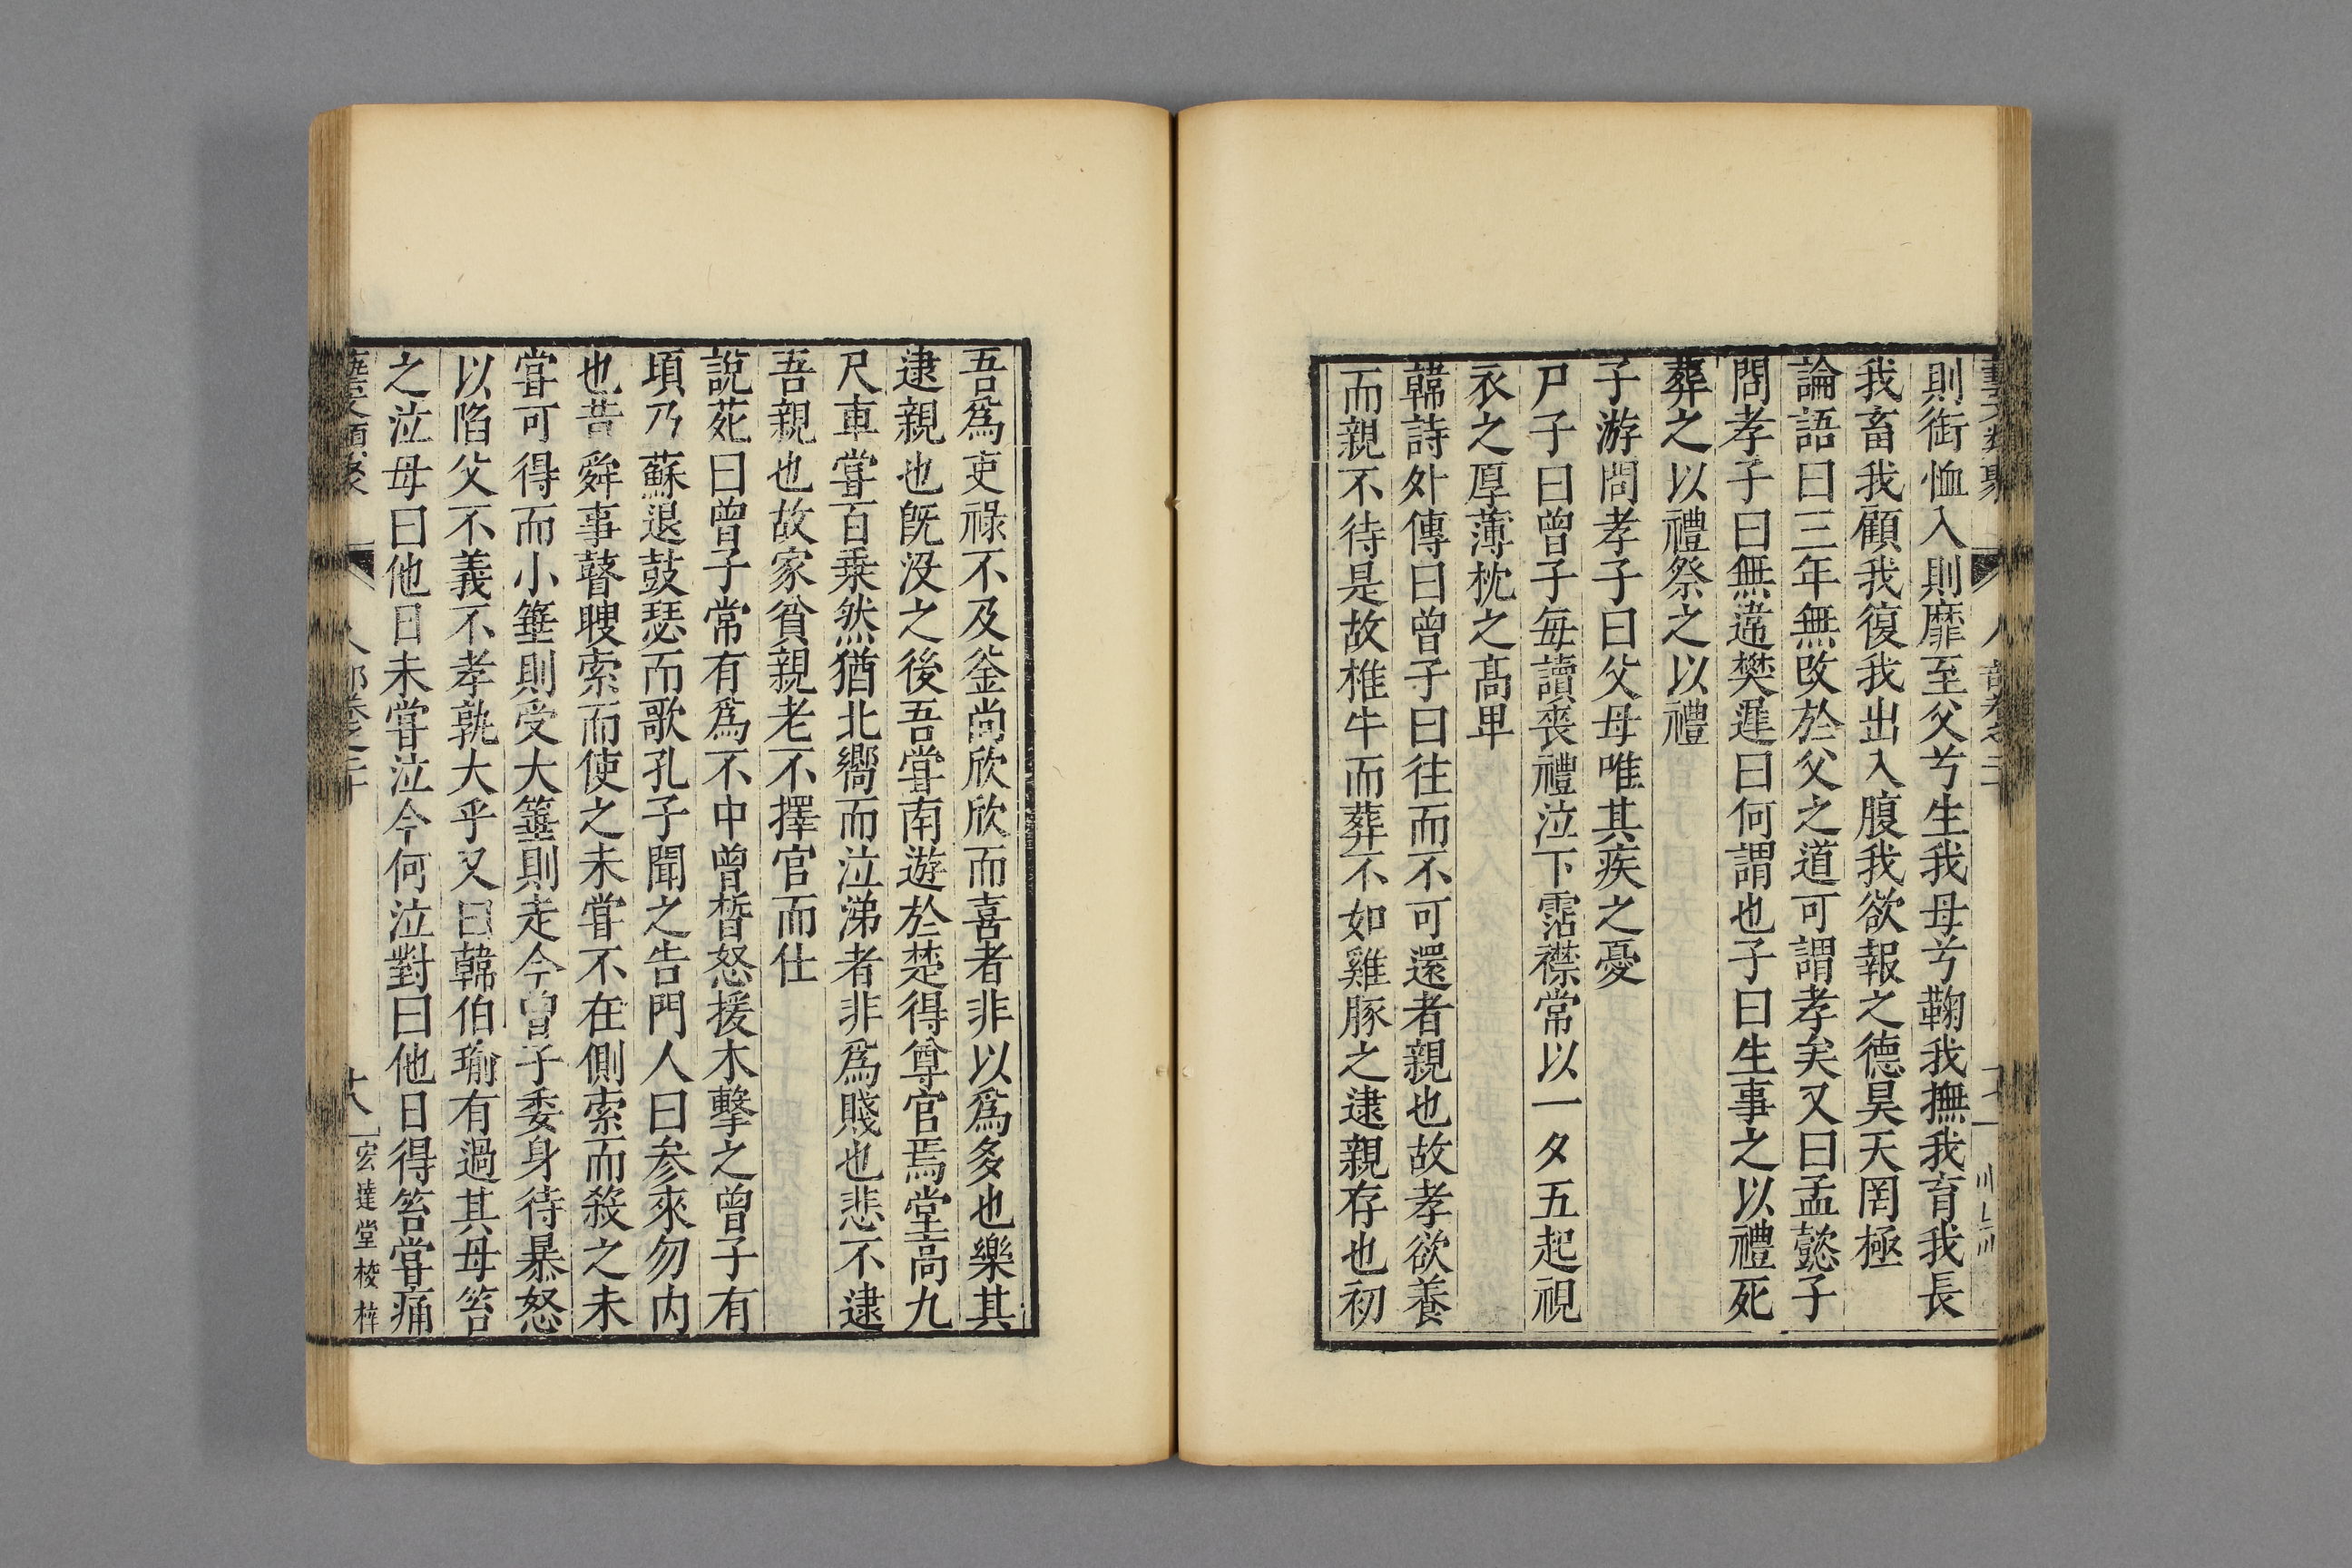 則銜恤入則靡至父兮生我母兮鞠我撫我育我長
我畜我顧我復我出入腹我欲報之德昊天罔極
論語曰三年無改於父之道可謂孝矣又曰孟懿子
問孝子曰無違樊遲曰何謂也子曰生事之以禮死
葬之以禮祭之以禮
子游問孝子曰父母唯其疾之憂
尸子曰曾子每讀喪禮泣下霑襟常以一夕五起視
衣之厚薄枕之髙卑
韓詩外傳曰曾子曰往而不可還者親也故孝欲養
而親不待是故椎牛而葬不如雞豚之逮親存也初
吾爲吏祿不及釜尚欣欣而喜者非以爲多也樂其
逮親也旣没之後吾甞南遊於楚得尊官焉堂高九
尺車甞百乗然猶北嚮而泣涕者非爲賤也悲不逮
吾親也故家貧親老不擇官而仕
說苑曰曾子常有爲不中曾晳怒援木擊之曾子有
頃乃蘇退鼓瑟而歌孔子聞之告門人曰參來勿内
也昔舜事瞽瞍索而使之未甞不在側索而殺之未
甞可得而小箠則受大箠則走今曾子委身待暴怒
以陷父不義不孝孰大乎又曰韓伯瑜有過其母笞
之泣母曰他日未甞泣今何泣對曰他日得笞甞痛
藝文類聚 人部卷之二十 十八 宏達堂校梓